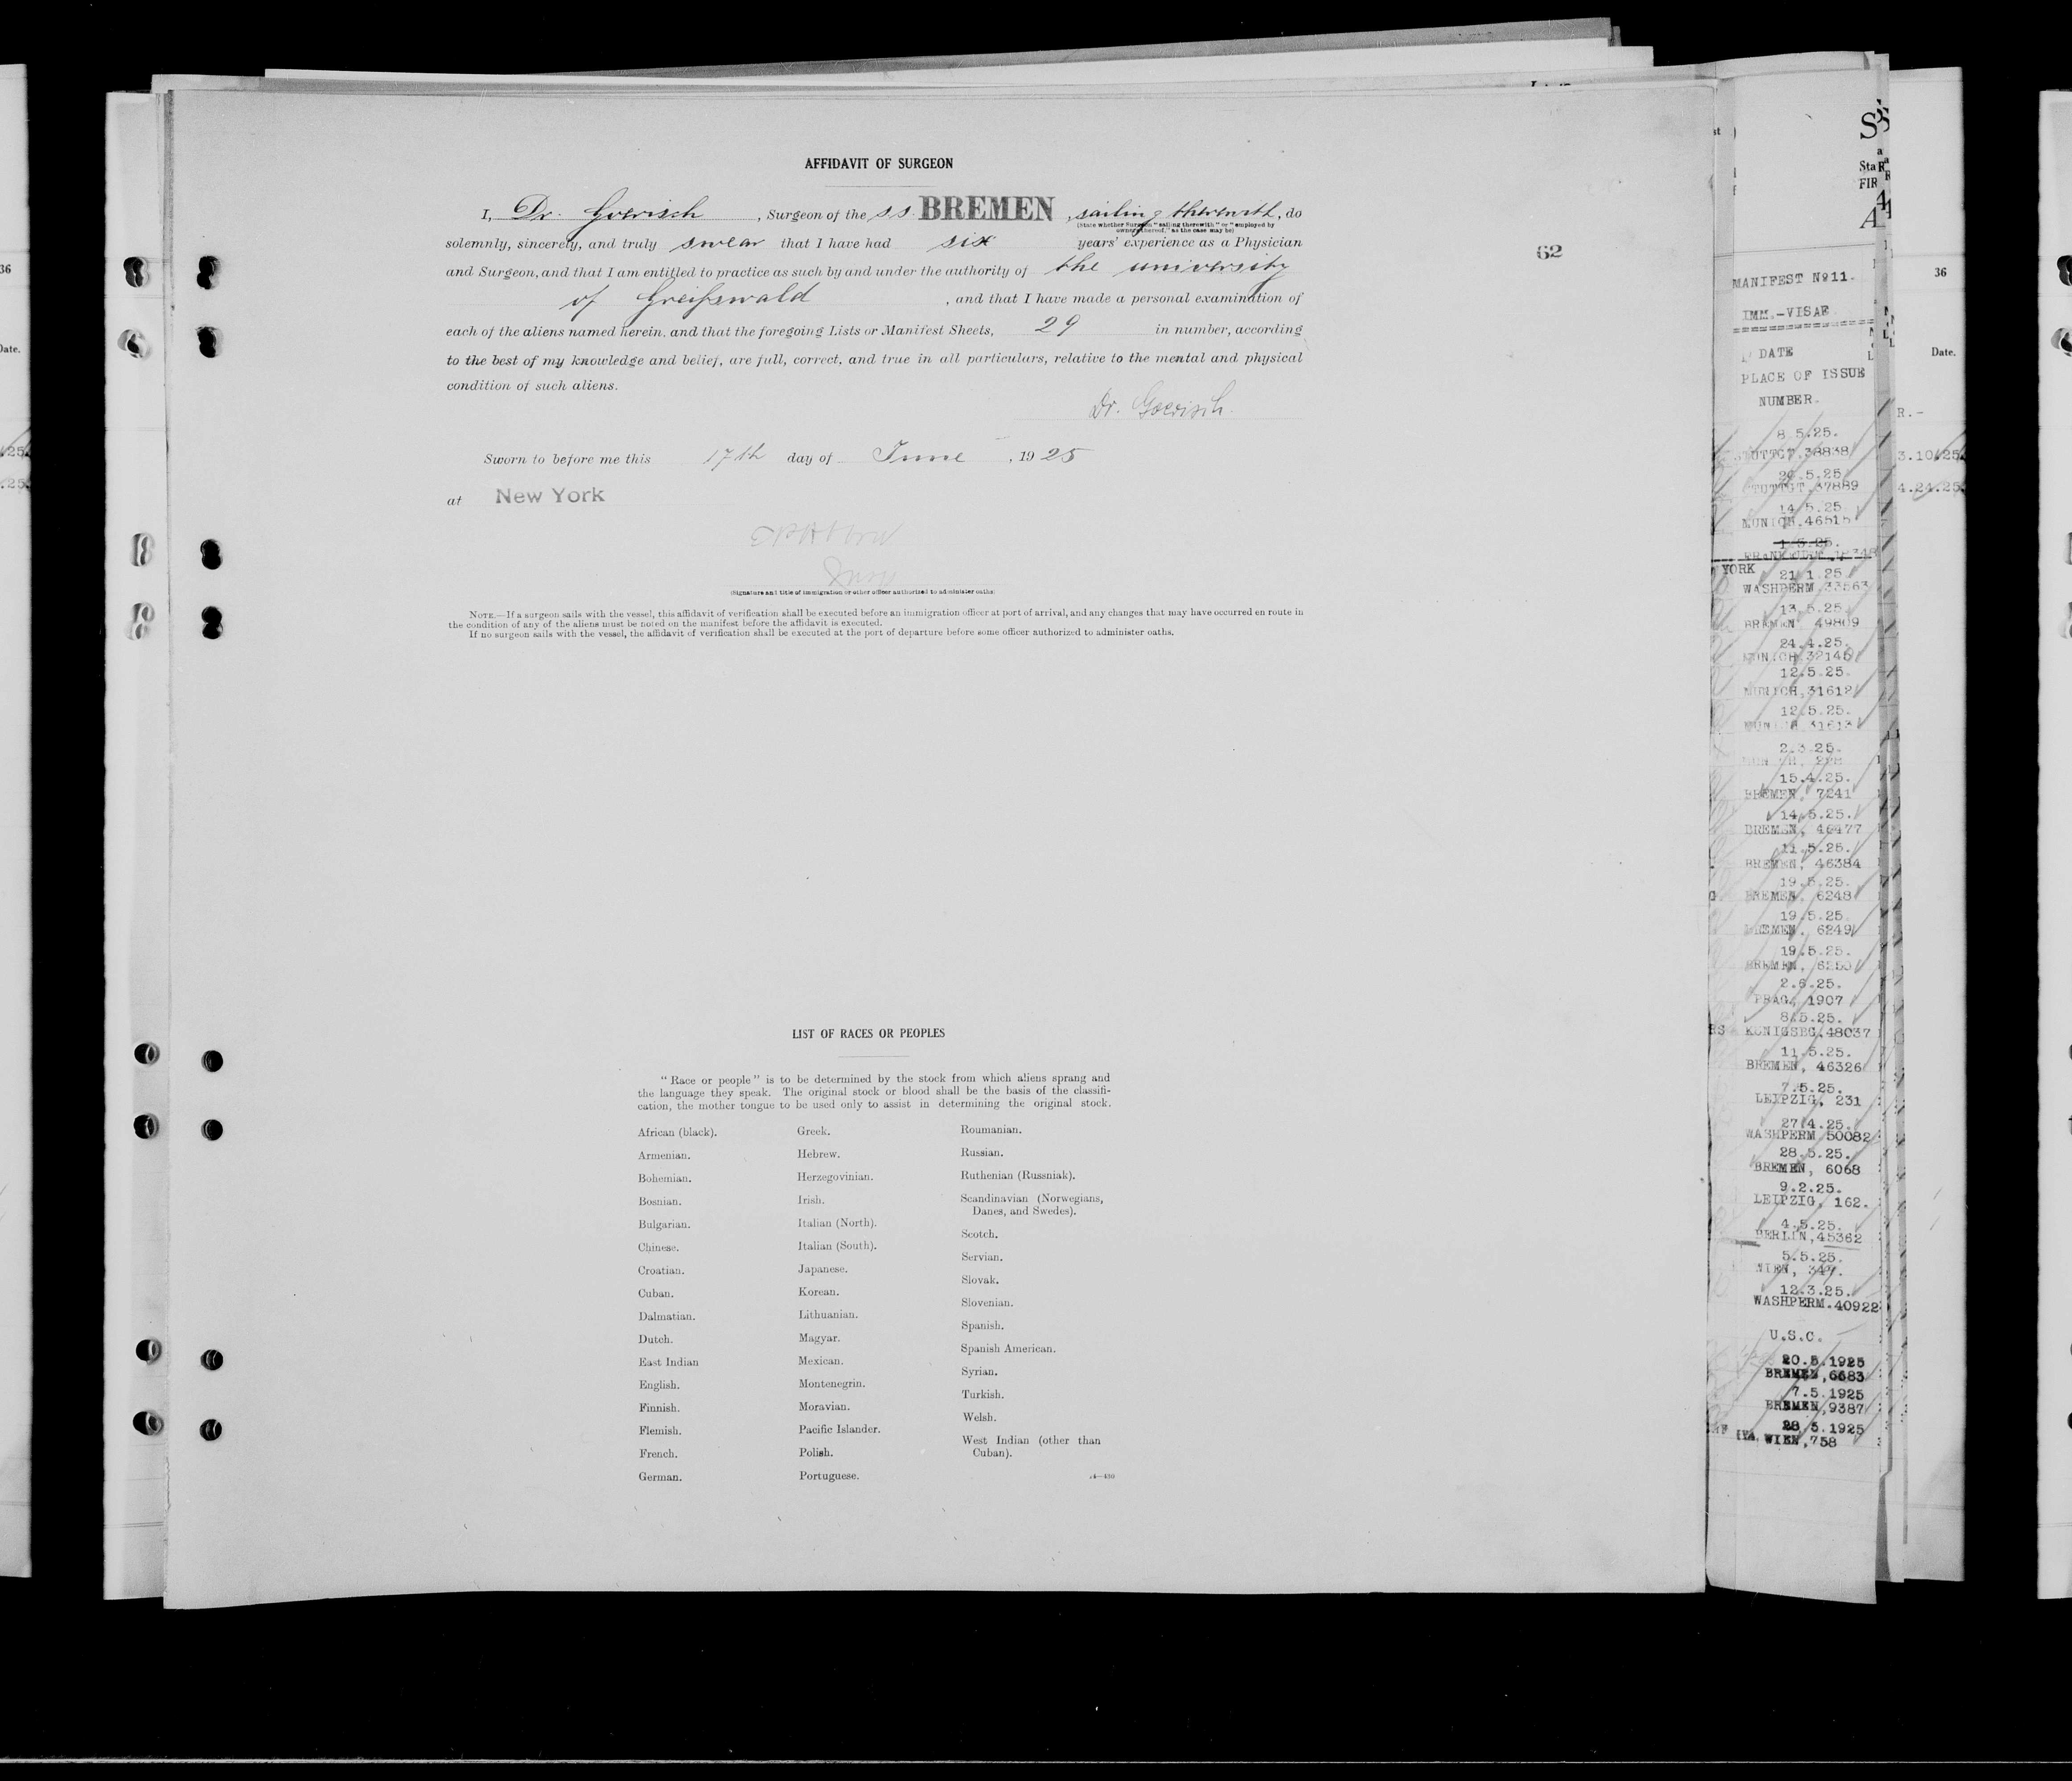 AFFIDAVIT OF SURGEON
I, Dr. Goerisch, Surgeon of the s.s. BREMEN, sailing therewith, do
(State whether Surgeon "sailing therewith" or "employed by
owners thereof," as the case may be)
solemnly, sincerely, and truly swear that I have had six years' experience as a Physician
and Surgeon, and that I am entitled to practice as such by and under the authority of the university
of Greifswald, and that I have made a personal examination of
each of the aliens named herein, and that the foregoing Lists or Manifest Sheets, 29 in number, according
to the best of my knowledge and belief, are full, correct, and true in all particulars, relative to the mental and physical
condition of such aliens.
Dr. Goerisch.
Sworn to before me this 17th day of June, 1925
at New York
(Signature and title of immigration or other officer authorized to administer oaths)
NOTE.—If a surgeon sails with the vessel, this affidavit of verification shall be executed before an immigration officer at port of arrival, and any changes that may have occurred en route in
the condition of any of the aliens must be noted on the manifest before the affidavit is executed.
If no surgeon sails with the vessel, the affidavit of verification shall be executed at the port of departure before some officer authorized to administer oaths.
62
LIST OF RACES OR PEOPLES
"Race or people" is to be determined by the stock from which aliens sprang and
the language they speak. The original stock or blood shall be the basis of the classifi-
cation, the mother tongue to be used only to assist in determining the original stock.
African (black).
Armenian.
Bohemian.
Bosnian.
Bulgarian.
Chinese.
Croatian.
Cuban.
Dalmatian.
Dutch.
East Indian
English.
Finnish.
Flemish.
French.
German.
Greek.
Hebrew.
Herzegovinian.
Irish.
Italian (North).
Italian (South).
Japanese.
Korean.
Lithuanian.
Magyar.
Mexican.
Montenegrin.
Moravian.
Pacific Islander.
Polish.
Portuguese.
Roumanian.
Russian.
Ruthenian (Russniak).
Scandinavian (Norwegians,
Danes, and Swedes).
Scotch.
Servian.
Slovak.
Slovenian.
Spanish.
Spanish American.
Syrian.
Turkish.
Welsh.
West Indian (other than
Cuban).
MANIFEST №11.
IMM.-VISAE
DATE
PLACE OF ISSUE
NUMBER.
8.5.25.
STUTTGT.38838
STUTTGT.37889
14.5.25
MUNICH.46515
YORK 21.1.25.
WASHPERM 33563
13.5.25.
BREMEN 49809
24.4.25.
MUNICH.32145
12.5.25.
MUNICH,31612
12.5.25.
MUNICH 31613
2.3.25.
15.4.25.
BREMEN, 7241
14.5.25.
BREMEN, 46477
11.5.25.
BREMEN, 46384
19.5.25.
BREMEN, 6248
19.5.25.
BREMEN, 6249
19.5.25.
BREMEN, 6250
2.6.25.
PRAG, 1907
8.5.25.
KONIGSBG.48037
11.5.25.
BREMEN, 46326
7.5.25.
LEIPZIG, 231
27.4.25.
WASHPERM 50082
28.5.25.
BREMEN, 6068
9.2.25.
LEIPZIG, 162.
4.5.25.
BERLIN,45362
5.5.25.
WIEN, 347.
12.3.25.
WASHPERM.40922
U.S.C.
20.5.1925
BREMEN,6683
7.5.1925
BREMEN,9387
28.5.1925
WIEN,758
36
Date.
R.-
3.10.25
4.24.25
36
Date.
.25
.25